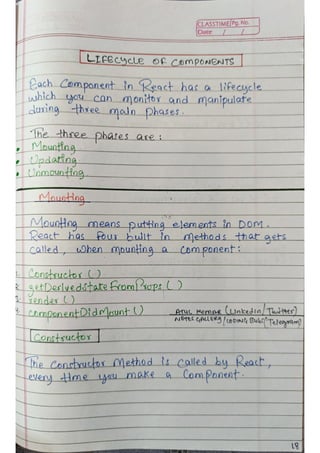 CLASSTIME Pg. No.
Date / /
LIFECYCLE OF COMPONENTS
Each Component in React has a lifecycle
which you can monitor and manipulate
during three main phases.
The three phases are :
• Mounting
• Updating
• Unmounting
Mounting
Mounting means putting elements in DOM.
React has four built in methods that gets
called, when mounting a component:
1. Constructor ( )
2. getDerivedStateFromProps. ( )
3. render ( )
4. componentDidMount ( )
ATUL KUMAR (LinkedIn / Twitter)
NOTES GALLERY / CODING BUGS (Telegram)
Constructor
The Constructor Method is called by React,
every time you make a Component.
18